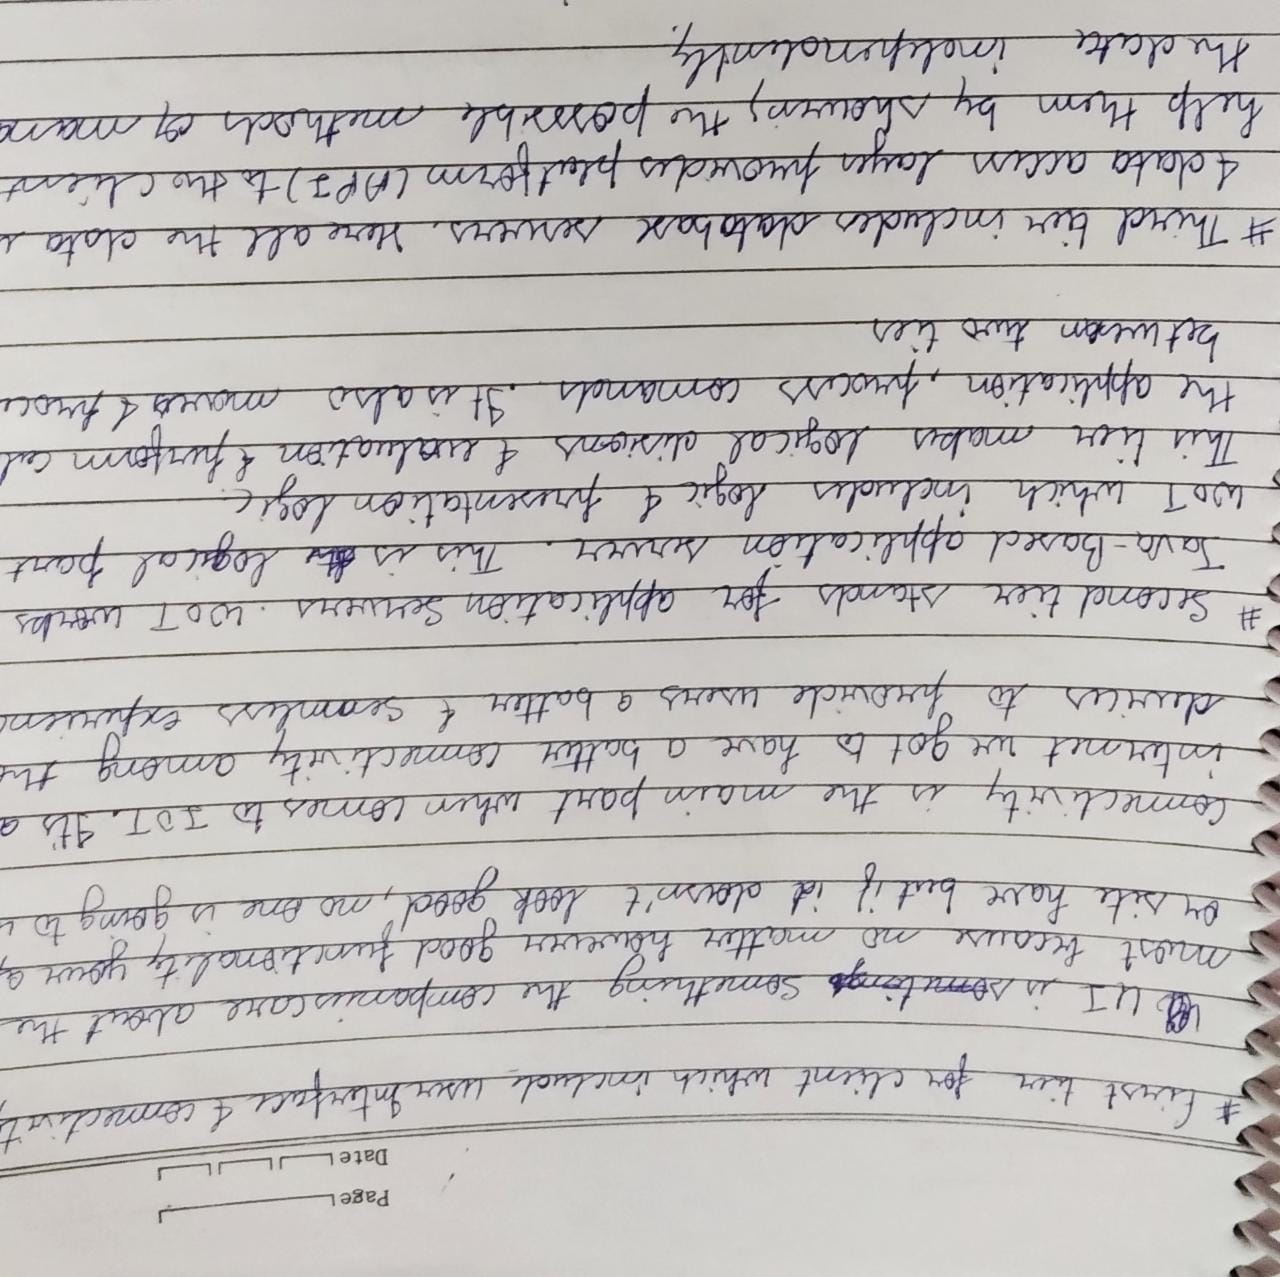 Page
Date
# First tier for client which include user Interface & connectivit
UI is sometings something the companies care about the
most because no matter however good functionality your a
or site have but if it doasn't look good, no one is going to
Connectivity is the main part when comes to IOT. It's a
internet we got to have a batter connectivity among the
devices to provide users a batter & seamless experienc
# Second tier stands for application Servers. WOT works
Java-Based application server. This is the logical part
WOT which includes logic & presentation logic
This tier makes logical disions & evaluation & perform cal
the application, process comands. It is also moves & proce
between two ties
# Third tier includes database servers. Here all the data
& data access layer provides platform (API) to the client
help them by showing the possible methods of mana
the data independently.